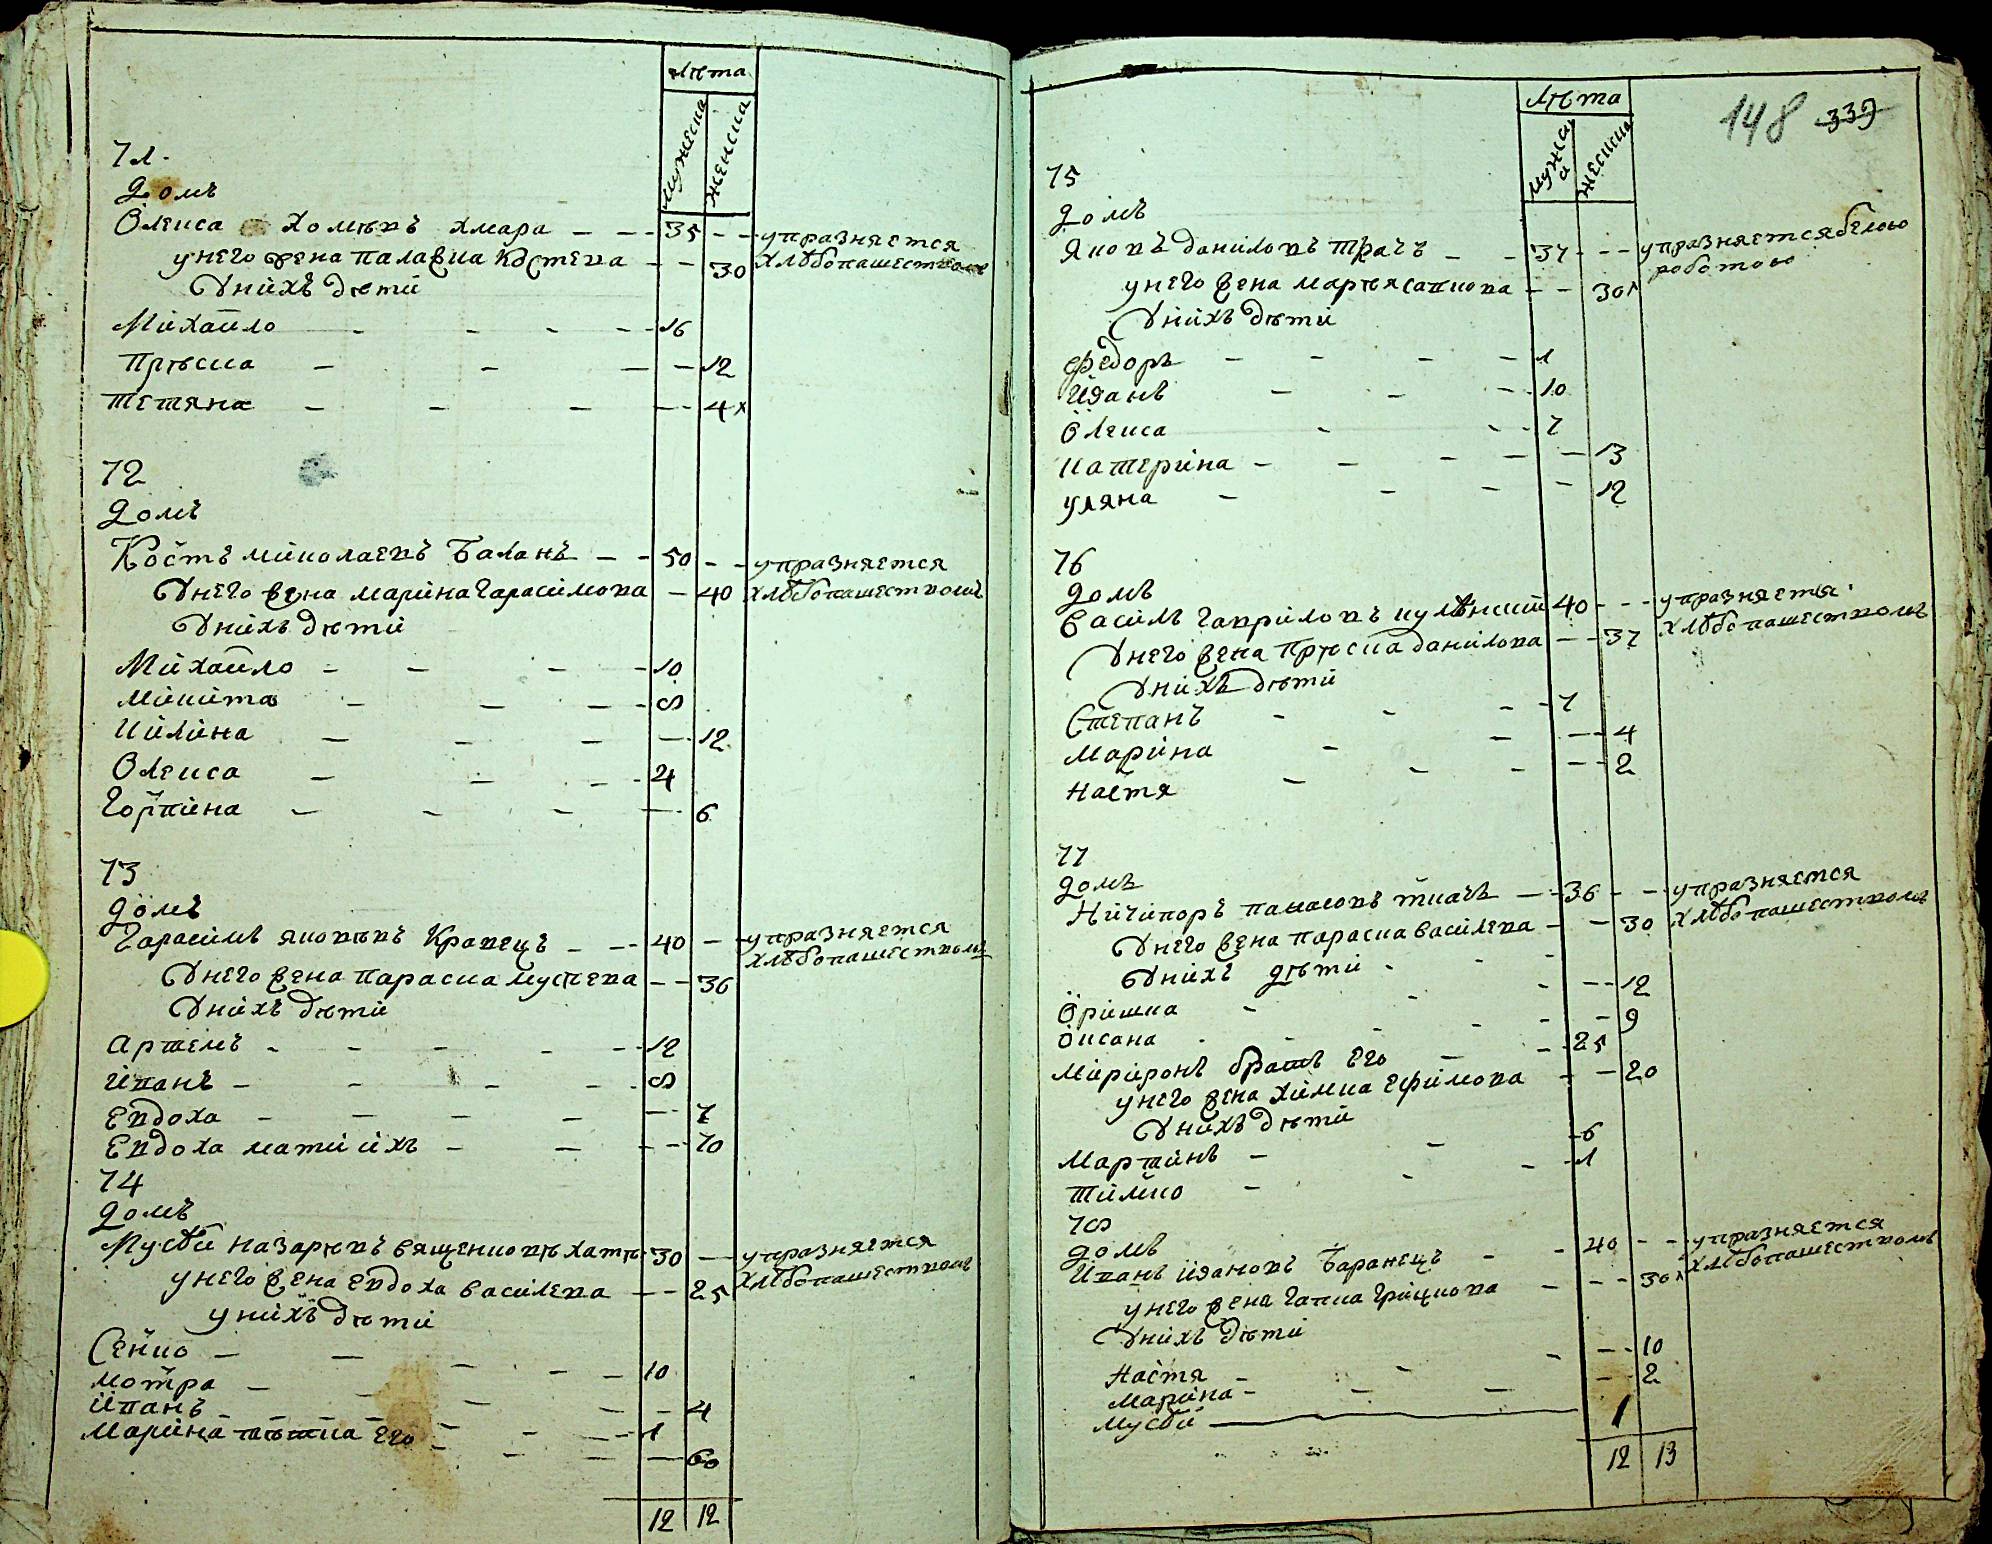 лѣта
мужеска
женска
71.
Домъ
Олекса Хомѣвъ хмара 35 упразняется
у него жена палажка Костева 30 хлѣбопашествомъ
У нихъ дѣти
Михайло 16
Прѣска 12
Тетяна 4
72
Домъ
Кость миколаевъ Баланъ 50 упразняется
У него жена марина Гарасимова 40 хлѣбопашествомъ
У нихъ дѣти
Михайло 10
Микита 8
Килина 12
Олекса 4
Горпина 6
73
Домъ
Гарасимъ яковѣвъ Кравецъ 40 упразняется
хлѣбопашествомъ
У него жена параска мусѣева 36
У нихъ дѣти
Артемъ 12
Иванъ 8
Евдоха 7
Евдоха мати ихъ 70
74
Домъ
Мусѣй назарѣвъ 30 упразняется
у него жена евдоха василева 25 хлѣбопашествомъ
у нихъ дѣти
Сенко 10
Мотра 4
Иванъ 1
Марина его 60
12 12
148 339
лѣта
75
Домъ
Яковъ даниловъ ткачъ 37 упразняется бѣлою
роботою
у него жена 30
У нихъ дѣти
Федоръ 1
Иванъ 10
Олекса 7
Катерина 13
Уляна 12
76
Домъ
Василь Гавриловъ 40 упразняется
У него жена Прѣска данилова 37 хлѣбопашествомъ
У нихъ дѣти
Степанъ 7
Марина 4
Настя 2
77
Домъ
Ничипоръ панасовъ ткачъ 36 упразняется
У него жена параска василева 30 хлѣбопашествомъ
У нихъ дѣти
Оришка 12
Оксана 9
братъ его 25
у него жена химка ефимова 20
У нихъ дѣти
Мартинъ 6
Тимко 1
78
Домъ
Иванъ ивановъ Баранецъ 40 упразняется
у него жена Гапка грицкова 30 хлѣбопашествомъ
У нихъ дѣти
Настя 10
Марина 2
Мусѣй 1
12 13